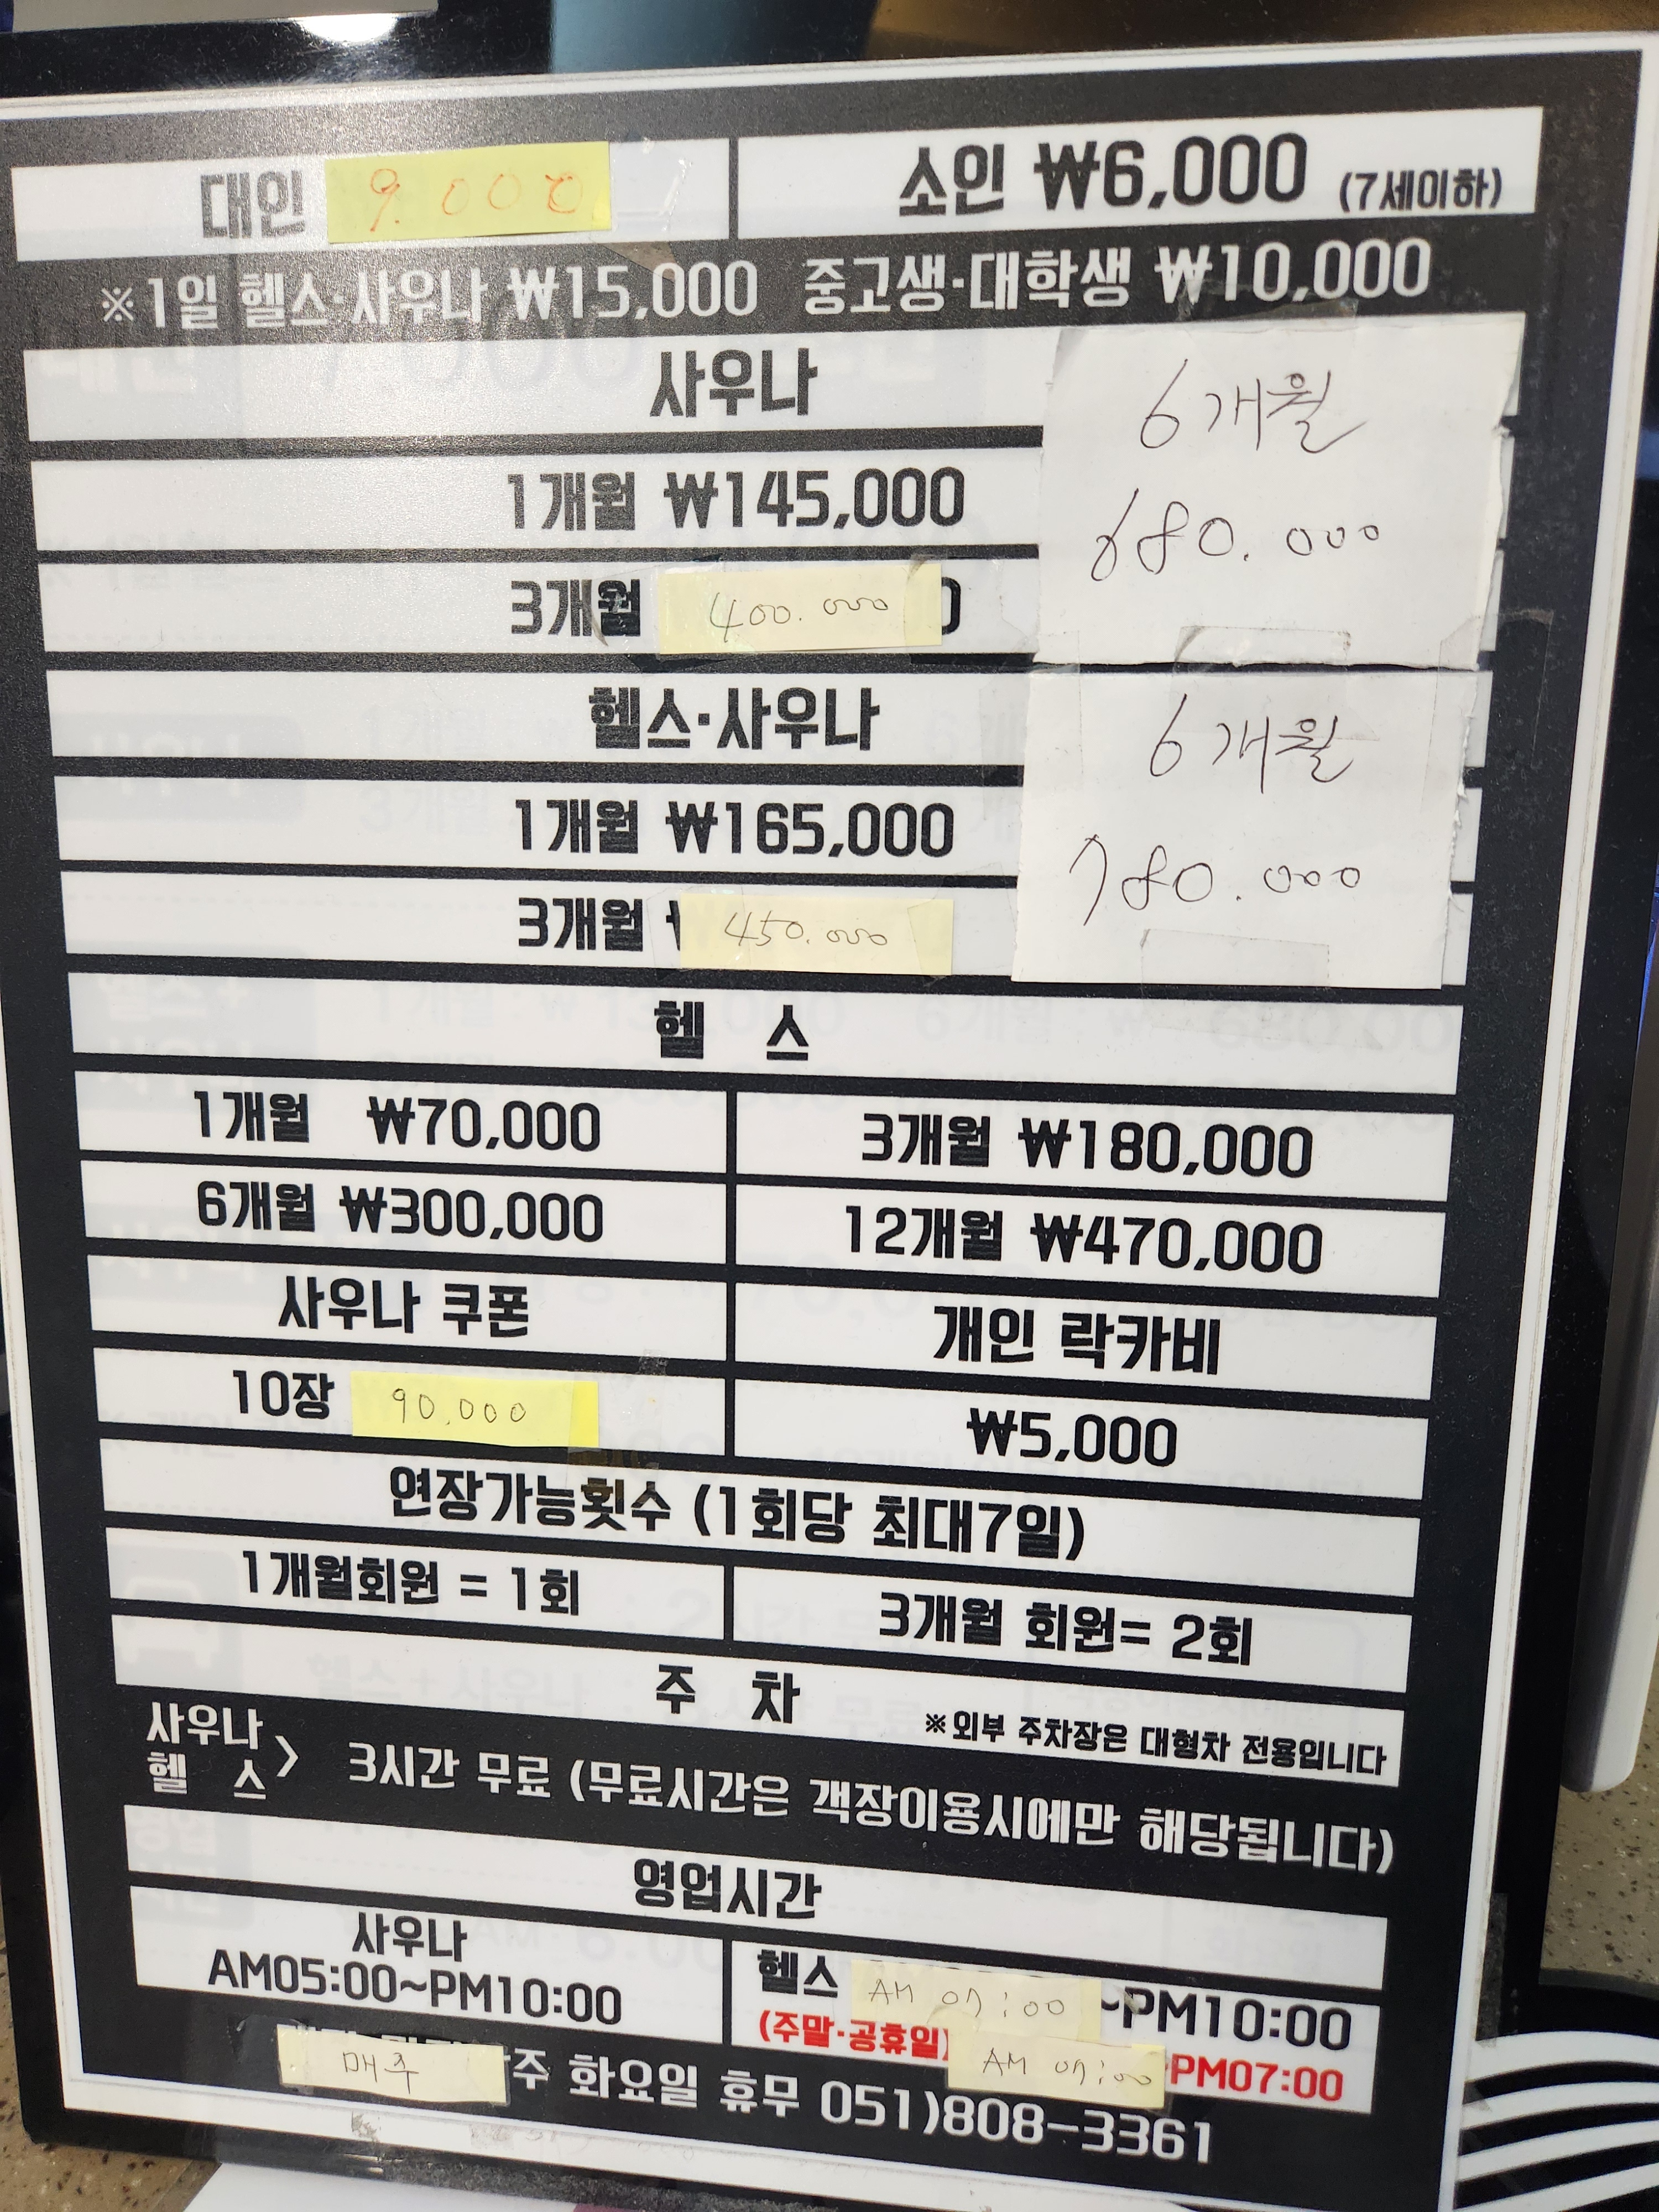 대인 9.000
소인 ₩6,000 (7세이하)
※1일 헬스·사우나 ₩15,000 중고생·대학생 ₩10,000
사우나
1개월 ₩145,000
3개월 400.000
6개월
680.000
헬스·사우나
1개월 ₩165,000
3개월 450.000
6개월
780.000
헬 스
1개월 ₩70,000
3개월 ₩180,000
6개월 ₩300,000
12개월 ₩470,000
사우나 쿠폰
개인 락카비
10장 90.000
₩5,000
연장가능횟수 (1회당 최대7일)
1개월회원 = 1회
3개월 회원= 2회
주 차
※외부 주차장은 대형차 전용입니다
사우나
헬 스
> 3시간 무료 (무료시간은 객장이용시에만 해당됩니다)
영업시간
사우나
AM05:00~PM10:00
헬스 AM 07:00 ~PM10:00
(주말·공휴일) AM 07:00 PM07:00
매주 주 화요일 휴무 051)808-3361